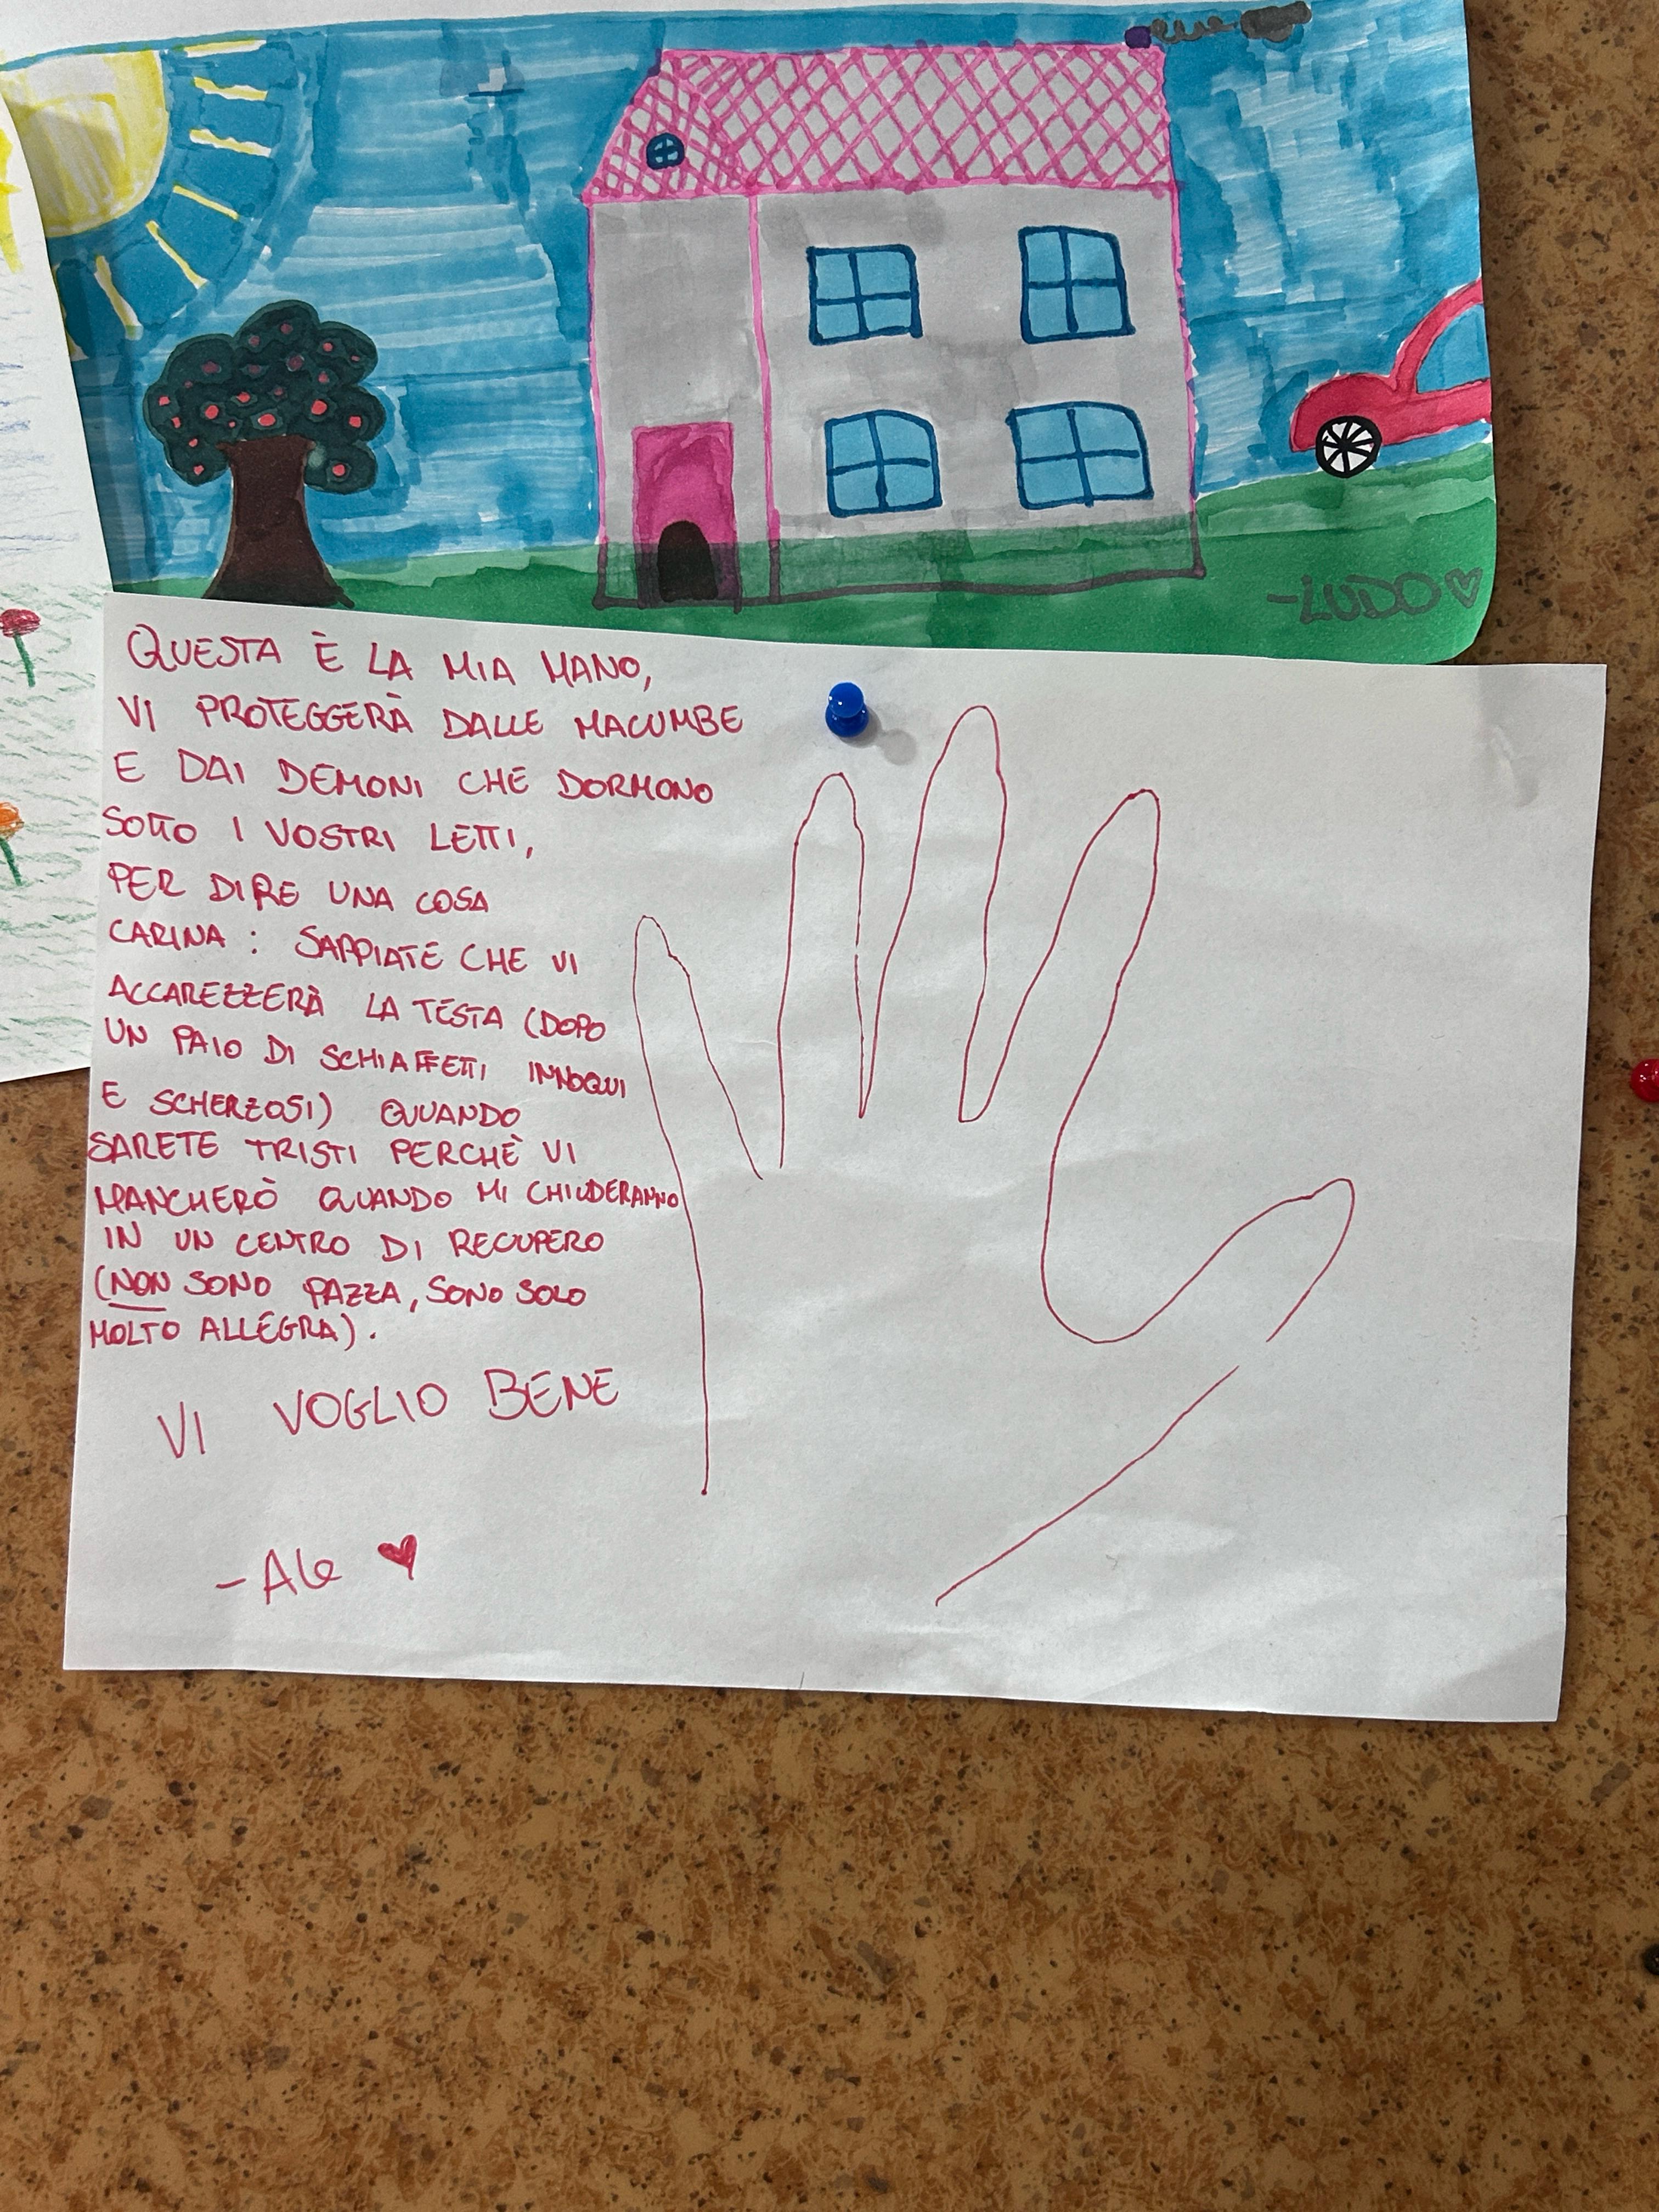 -LUDO♡
QUESTA È LA MIA MANO,
VI PROTEGGERÀ DALLE MACUMBE
E DAI DEMONI CHE DORMONO
SOTTO I VOSTRI LETTI,
PER DIRE UNA COSA
CARINA : SAPPIATE CHE VI
ACCAREZZERÀ LA TESTA (DOPO
UN PAIO DI SCHIAFFETTI INNOQUI
E SCHERZOSI) QUANDO
SARETE TRISTI PERCHÈ VI
MANCHERÒ QUANDO MI CHIUDERANNO
IN UN CENTRO DI RECUPERO
(NON SONO PAZZA, SONO SOLO
MOLTO ALLEGRA).
VI VOGLIO BENE
-Ale ♥